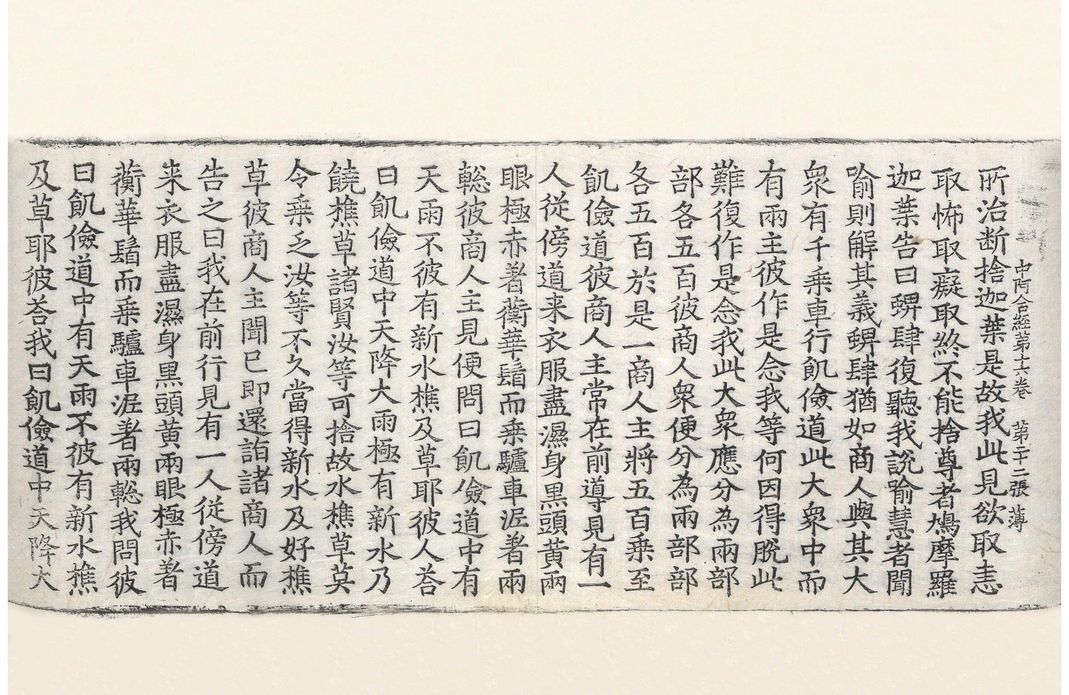 所治断捨迦葉是故我此見欲取恚
中阿含經第十六卷 第二十二張 薄
取怖取癡取終不能捨尊者鳩摩羅
迦葉告曰蜱肆復聽我說喻慧者聞
喻則解其義蜱肆猶如商人與其大
衆有千乘車行飢儉道此大衆中而
有兩主彼作是念我等何因得脫此
難復作是念我此大衆應分為兩部
部各五百彼商人衆便分為兩部部
各五百於是一商人主將五百乘至
飢儉道彼商人主常在前導見有一
人從傍道来衣服盡濕身黒頭黄兩
眼極赤著蘅華鬘而乘驢車泥著兩
轗彼商人主見便問曰飢儉道中有
天雨不彼有新水樵及草耶彼人荅
曰飢儉道中天降大雨極有新水乃
饒樵草諸賢汝等可捨故水樵草莫
令乘乏汝等不久當得新水及好樵
草彼商人主聞已即還詣諸商人而
告之曰我在前行見有一人從傍道
来衣服盡濕身黒頭黄兩眼極赤著
蘅華鬘而乘驢車泥著兩轗我問彼
曰飢儉道中有天雨不彼有新水樵
及草耶彼荅我曰飢儉道中天降大